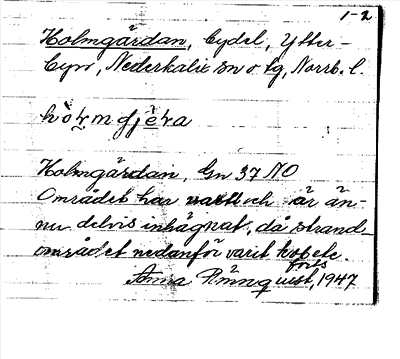 1-2
Holmgärdan, bydel, Ytter-
byn, Nederkalix sn o. tg, Norrb. l.
Holmgärdan, Gn 37 NO
Området har varit och är än-
nu delvis inhägnat, då strand-
området nedanför varit kobete.
forts
Anna Rönnquist, 1947